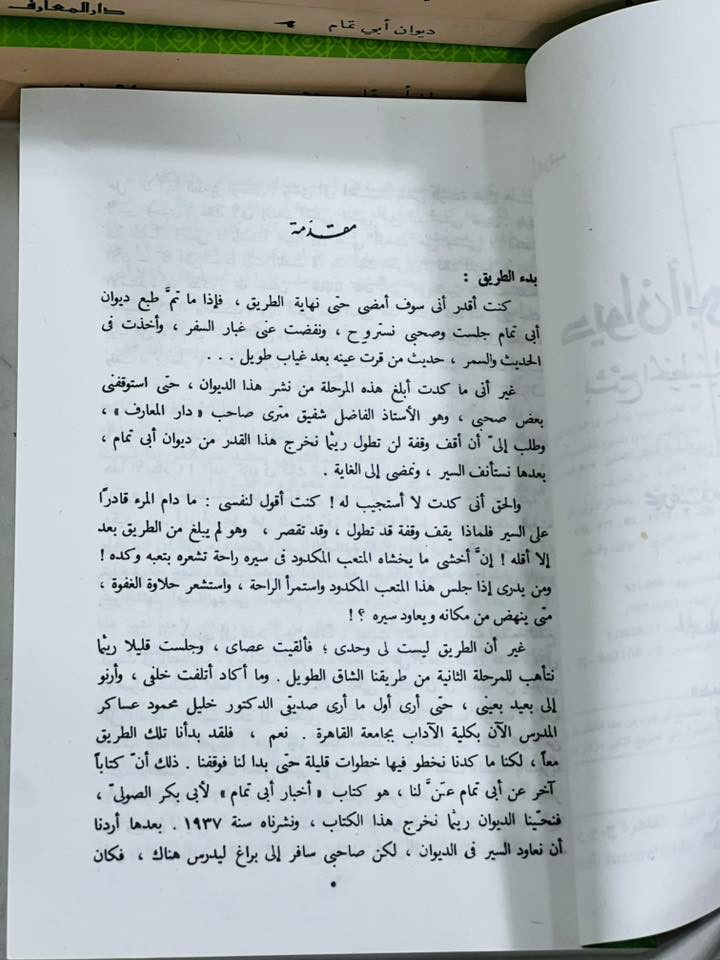 دار المعارف
ديوان أبي تمام
مقدمة
بدء الطريق :
كنت أقدر أنى سوف أمضى حتى نهاية الطريق ، فإذا ما تمَّ طبع ديوان
أبى تمام جلست وصحبى نستروح ، ونفضت عنى غبار السفر ، وأخذت فى
الحديث والسمر ، حديث من قرت عينه بعد غياب طويل . . .
غير أنى ما كدت أبلغ هذه المرحلة من نشر هذا الديوان ، حتى استوقفنى
بعض صحبى ، وهو الأستاذ الفاضل شفيق مترى صاحب « دار المعارف » ،
وطلب إلىّ أن أقف وقفة لن تطول ريثما نخرج هذا القدر من ديوان أبى تمام ،
بعدها نستأنف السير ، ونمضى إلى الغاية .
والحق أنى كدت لا أستجيب له ! كنت أقول لنفسى : ما دام المرء قادرًا
على السير فلماذا يقف وقفة قد تطول ، وقد تقصر ، وهو لم يبلغ من الطريق بعد
إلا أقله ! إنَّ أخشى ما يخشاه المتعب المكدود فى سيره راحة تشعره بتعبه وكده !
ومن يدرى إذا جلس هذا المتعب المكدود واستمرأ الراحة ، واستشعر حلاوة الغفوة ،
متى ينهض من مكانه ويعاود سيره ؟ !
غير أن الطريق ليست لى وحدى ؛ فألقيت عصاى ، وجلست قليلا ريثما
نتأهب للمرحلة الثانية من طريقنا الشاق الطويل . وما أكاد أتلفت خلفى ، وأرنو
إلى بعيد بعينى ، حتى أرى أول ما أرى صديقى الدكتور خليل محمود عساكر
المدرس الآن بكلية الآداب بجامعة القاهرة . نعم ، فلقد بدأنا تلك الطريق
معاً ، لكنا ما كدنا نخطو فيها خطوات قليلة حتى بدا لنا فوقفنا . ذلك أنّ كتاباً
آخر عن أبى تمام عَنَّ لنا ، هو كتاب « أخبار أبى تمام » لأبى بكر الصولىّ ،
فنحّينا الديوان ريثما نخرج هذا الكتاب ، ونشرناه سنة ١٩٣٧ . بعدها أردنا
أن نعاود السير فى الديوان ، لكن صاحبى سافر إلى براغ ليدرس هناك ، فكان
٥